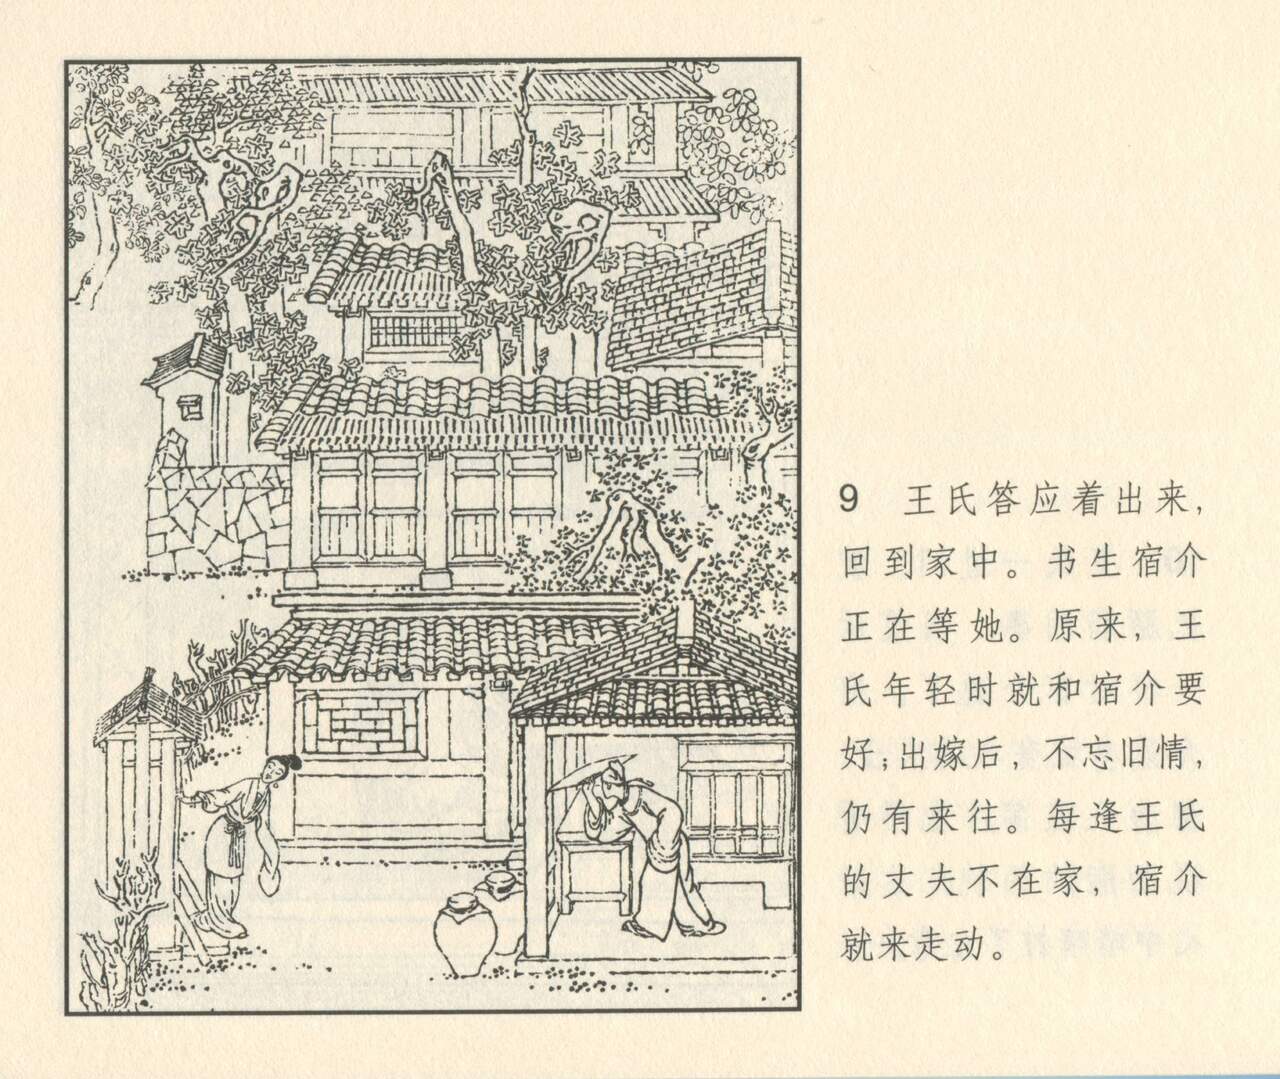 9 王氏答应着出来,
回到家中。书生宿介
正在等她。原来,王
氏年轻时就和宿介要
好;出嫁后,不忘旧情,
仍有来往。每逢王氏
的丈夫不在家,宿介
就来走动。